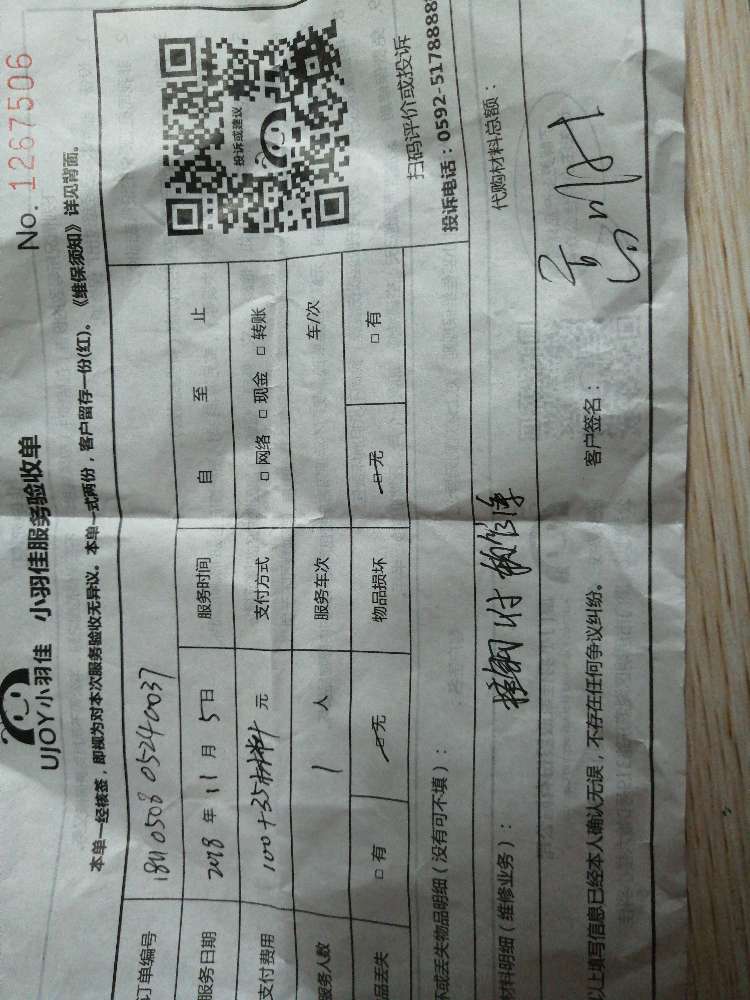 No. 1267506
UJOY小羽佳 小羽佳服务验收单
本单一经核签，即视为对本次服务验收无异议。本单一式两份，客户留存一份(红)。《维保须知》详见背面。
订单编号 1811050805240037
服务日期 2018 年 11 月 5 日 服务时间 自 至 止
支付费用 100+35材料 元 支付方式 □ 网络 □ 现金 □ 转账
服务人数 1 人 服务车次 车/次
品丢失 □ 有 □ 无 物品损坏 □ 无 □ 有
投诉或建议
扫码评价或投诉
投诉电话：0592-5178888
坏或丢失物品明细（没有可不填）：
材料明细（维修业务）： 代购材料总额：
以上填写信息已经本人确认无误，不存在任何争议纠纷。 客户签名：